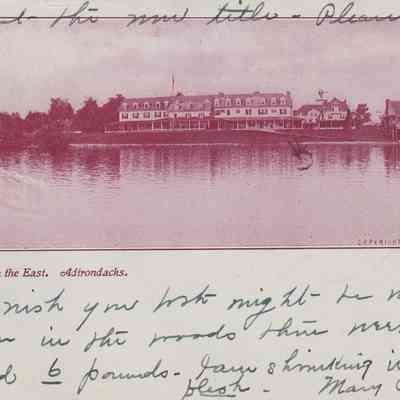 the new title - Please
COPYRIGHT
the East. Adirondacks.
wish you both might be
in the woods there
6 pounds - I am shrinking
flesh. Mary